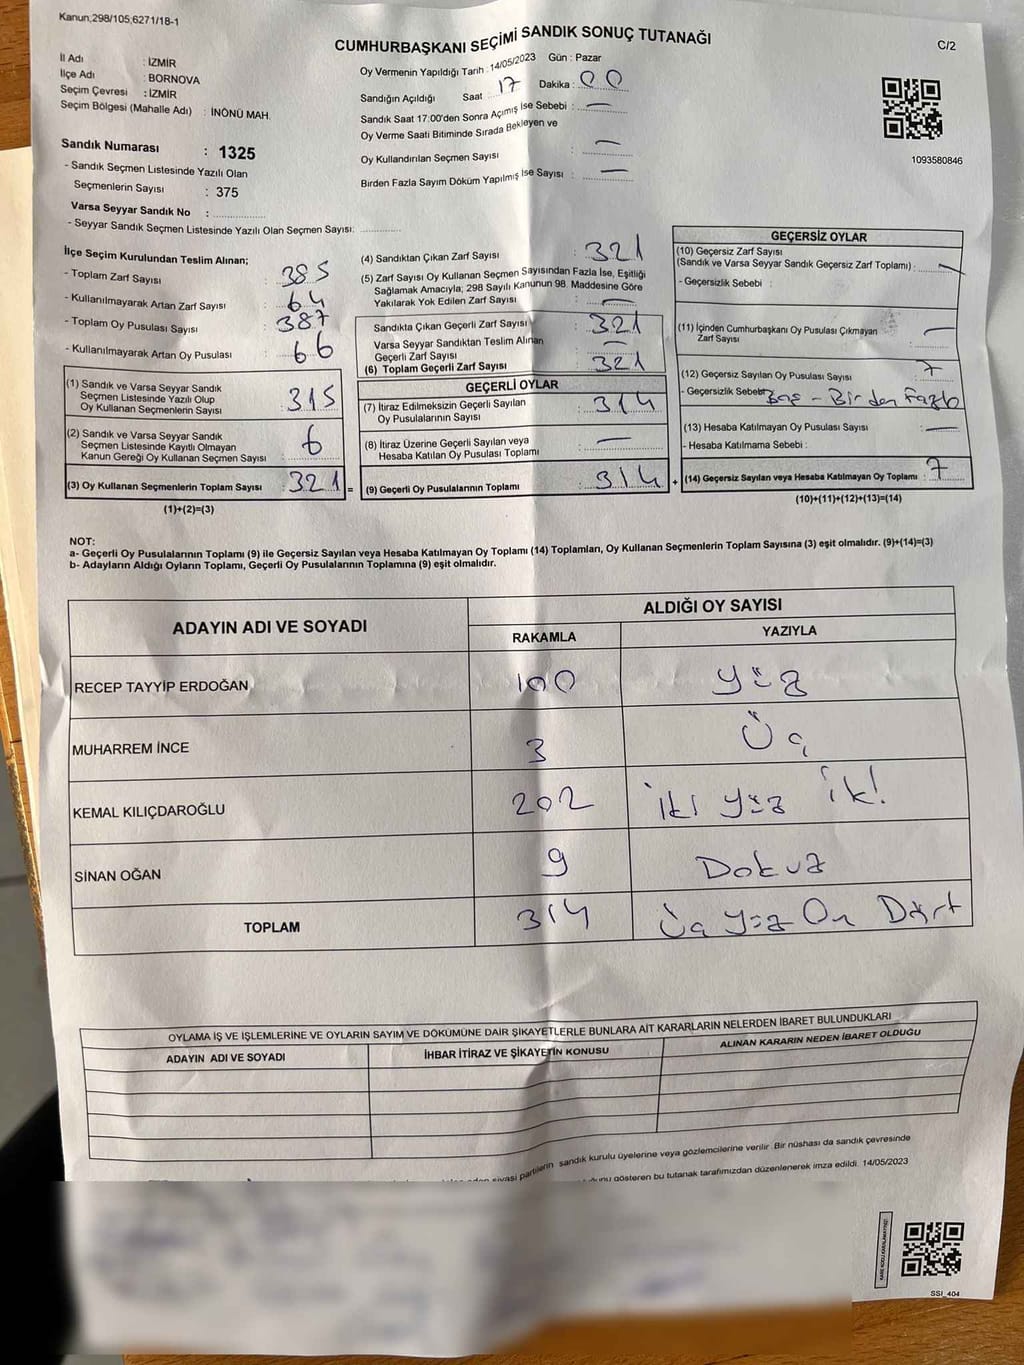 Kanun;298/105;6271/18-1
CUMHURBAŞKANI SEÇİMİ SANDIK SONUÇ TUTANAĞI
C/2
İl Adı : İZMİR
İlçe Adı : BORNOVA
Seçim Çevresi : İZMİR
Seçim Bölgesi (Mahalle Adı) : İNÖNÜ MAH.
Sandık Numarası : 1325
- Sandık Seçmen Listesinde Yazılı Olan
Seçmenlerin Sayısı : 375
Varsa Seyyar Sandık No :
- Seyyar Sandık Seçmen Listesinde Yazılı Olan Seçmen Sayısı:
Oy Vermenin Yapıldığı Tarih : 14/05/2023 Gün : Pazar
Sandığın Açıldığı Saat : 17 Dakika : 00
Sandık Saat 17:00'den Sonra Açılmış İse Sebebi : —
Oy Verme Saati Bitiminde Sırada Bekleyen ve
Oy Kullandırılan Seçmen Sayısı : —
Birden Fazla Sayım Döküm Yapılmış İse Sayısı : —
1093580846
İlçe Seçim Kurulundan Teslim Alınan;
- Toplam Zarf Sayısı : 385
- Kullanılmayarak Artan Zarf Sayısı : 64
- Toplam Oy Pusulası Sayısı : 387
- Kullanılmayarak Artan Oy Pusulası : 66
(1) Sandık ve Varsa Seyyar Sandık
Seçmen Listesinde Yazılı Olup
Oy Kullanan Seçmenlerin Sayısı : 315
(2) Sandık ve Varsa Seyyar Sandık
Seçmen Listesinde Kayıtlı Olmayan
Kanun Gereği Oy Kullanan Seçmen Sayısı : 6
(3) Oy Kullanan Seçmenlerin Toplam Sayısı : 321 =
(1)+(2)=(3)
(4) Sandıktan Çıkan Zarf Sayısı : 321
(5) Zarf Sayısı Oy Kullanan Seçmen Sayısından Fazla İse, Eşitliği
Sağlamak Amacıyla; 298 Sayılı Kanunun 98. Maddesine Göre
Yakılarak Yok Edilen Zarf Sayısı : —
Sandıkta Çıkan Geçerli Zarf Sayısı : 321
Varsa Seyyar Sandıktan Teslim Alınan
Geçerli Zarf Sayısı : —
(6) Toplam Geçerli Zarf Sayısı : 321
GEÇERLİ OYLAR
(7) İtiraz Edilmeksizin Geçerli Sayılan
Oy Pusulalarının Sayısı : 314
(8) İtiraz Üzerine Geçerli Sayılan veya
Hesaba Katılan Oy Pusulası Toplamı : —
(9) Geçerli Oy Pusulalarının Toplamı : 314 +
GEÇERSİZ OYLAR
(10) Geçersiz Zarf Sayısı
(Sandık ve Varsa Seyyar Sandık Geçersiz Zarf Toplamı) : —
- Geçersizlik Sebebi :
(11) İçinden Cumhurbaşkanı Oy Pusulası Çıkmayan
Zarf Sayısı : —
(12) Geçersiz Sayılan Oy Pusulası Sayısı : 7
- Geçersizlik Sebebi : Boş - Birden Fazla
(13) Hesaba Katılmayan Oy Pusulası Sayısı : —
- Hesaba Katılmama Sebebi :
(14) Geçersiz Sayılan veya Hesaba Katılmayan Oy Toplamı : 7
(10)+(11)+(12)+(13)=(14)
NOT:
a- Geçerli Oy Pusulalarının Toplamı (9) ile Geçersiz Sayılan veya Hesaba Katılmayan Oy Toplamı (14) Toplamları, Oy Kullanan Seçmenlerin Toplam Sayısına (3) eşit olmalıdır. (9)+(14)=(3)
b- Adayların Aldığı Oyların Toplamı, Geçerli Oy Pusulalarının Toplamına (9) eşit olmalıdır.
ADAYIN ADI VE SOYADI
ALDIĞI OY SAYISI
RAKAMLA YAZIYLA
RECEP TAYYİP ERDOĞAN 100 Yüz
MUHARREM İNCE 3 Üç
KEMAL KILIÇDAROĞLU 202 İki Yüz İki
SİNAN OĞAN 9 Dokuz
TOPLAM 314 Üç Yüz On Dört
OYLAMA İŞ VE İŞLEMLERİNE VE OYLARIN SAYIM VE DÖKÜMÜNE DAİR ŞİKAYETLERLE BUNLARA AİT KARARLARIN NELERDEN İBARET BULUNDUKLARI
ADAYIN ADI VE SOYADI İHBAR İTİRAZ VE ŞİKAYETİN KONUSU ALINAN KARARIN NEDEN İBARET OLDUĞU
siyasi partilerin sandık kurulu üyelerine veya gözlemcilerine verilir. Bir nüshası da sandık çevresinde
gösteren bu tutanak tarafımızdan düzenlenerek imza edildi. 14/05/2023
SSI_404